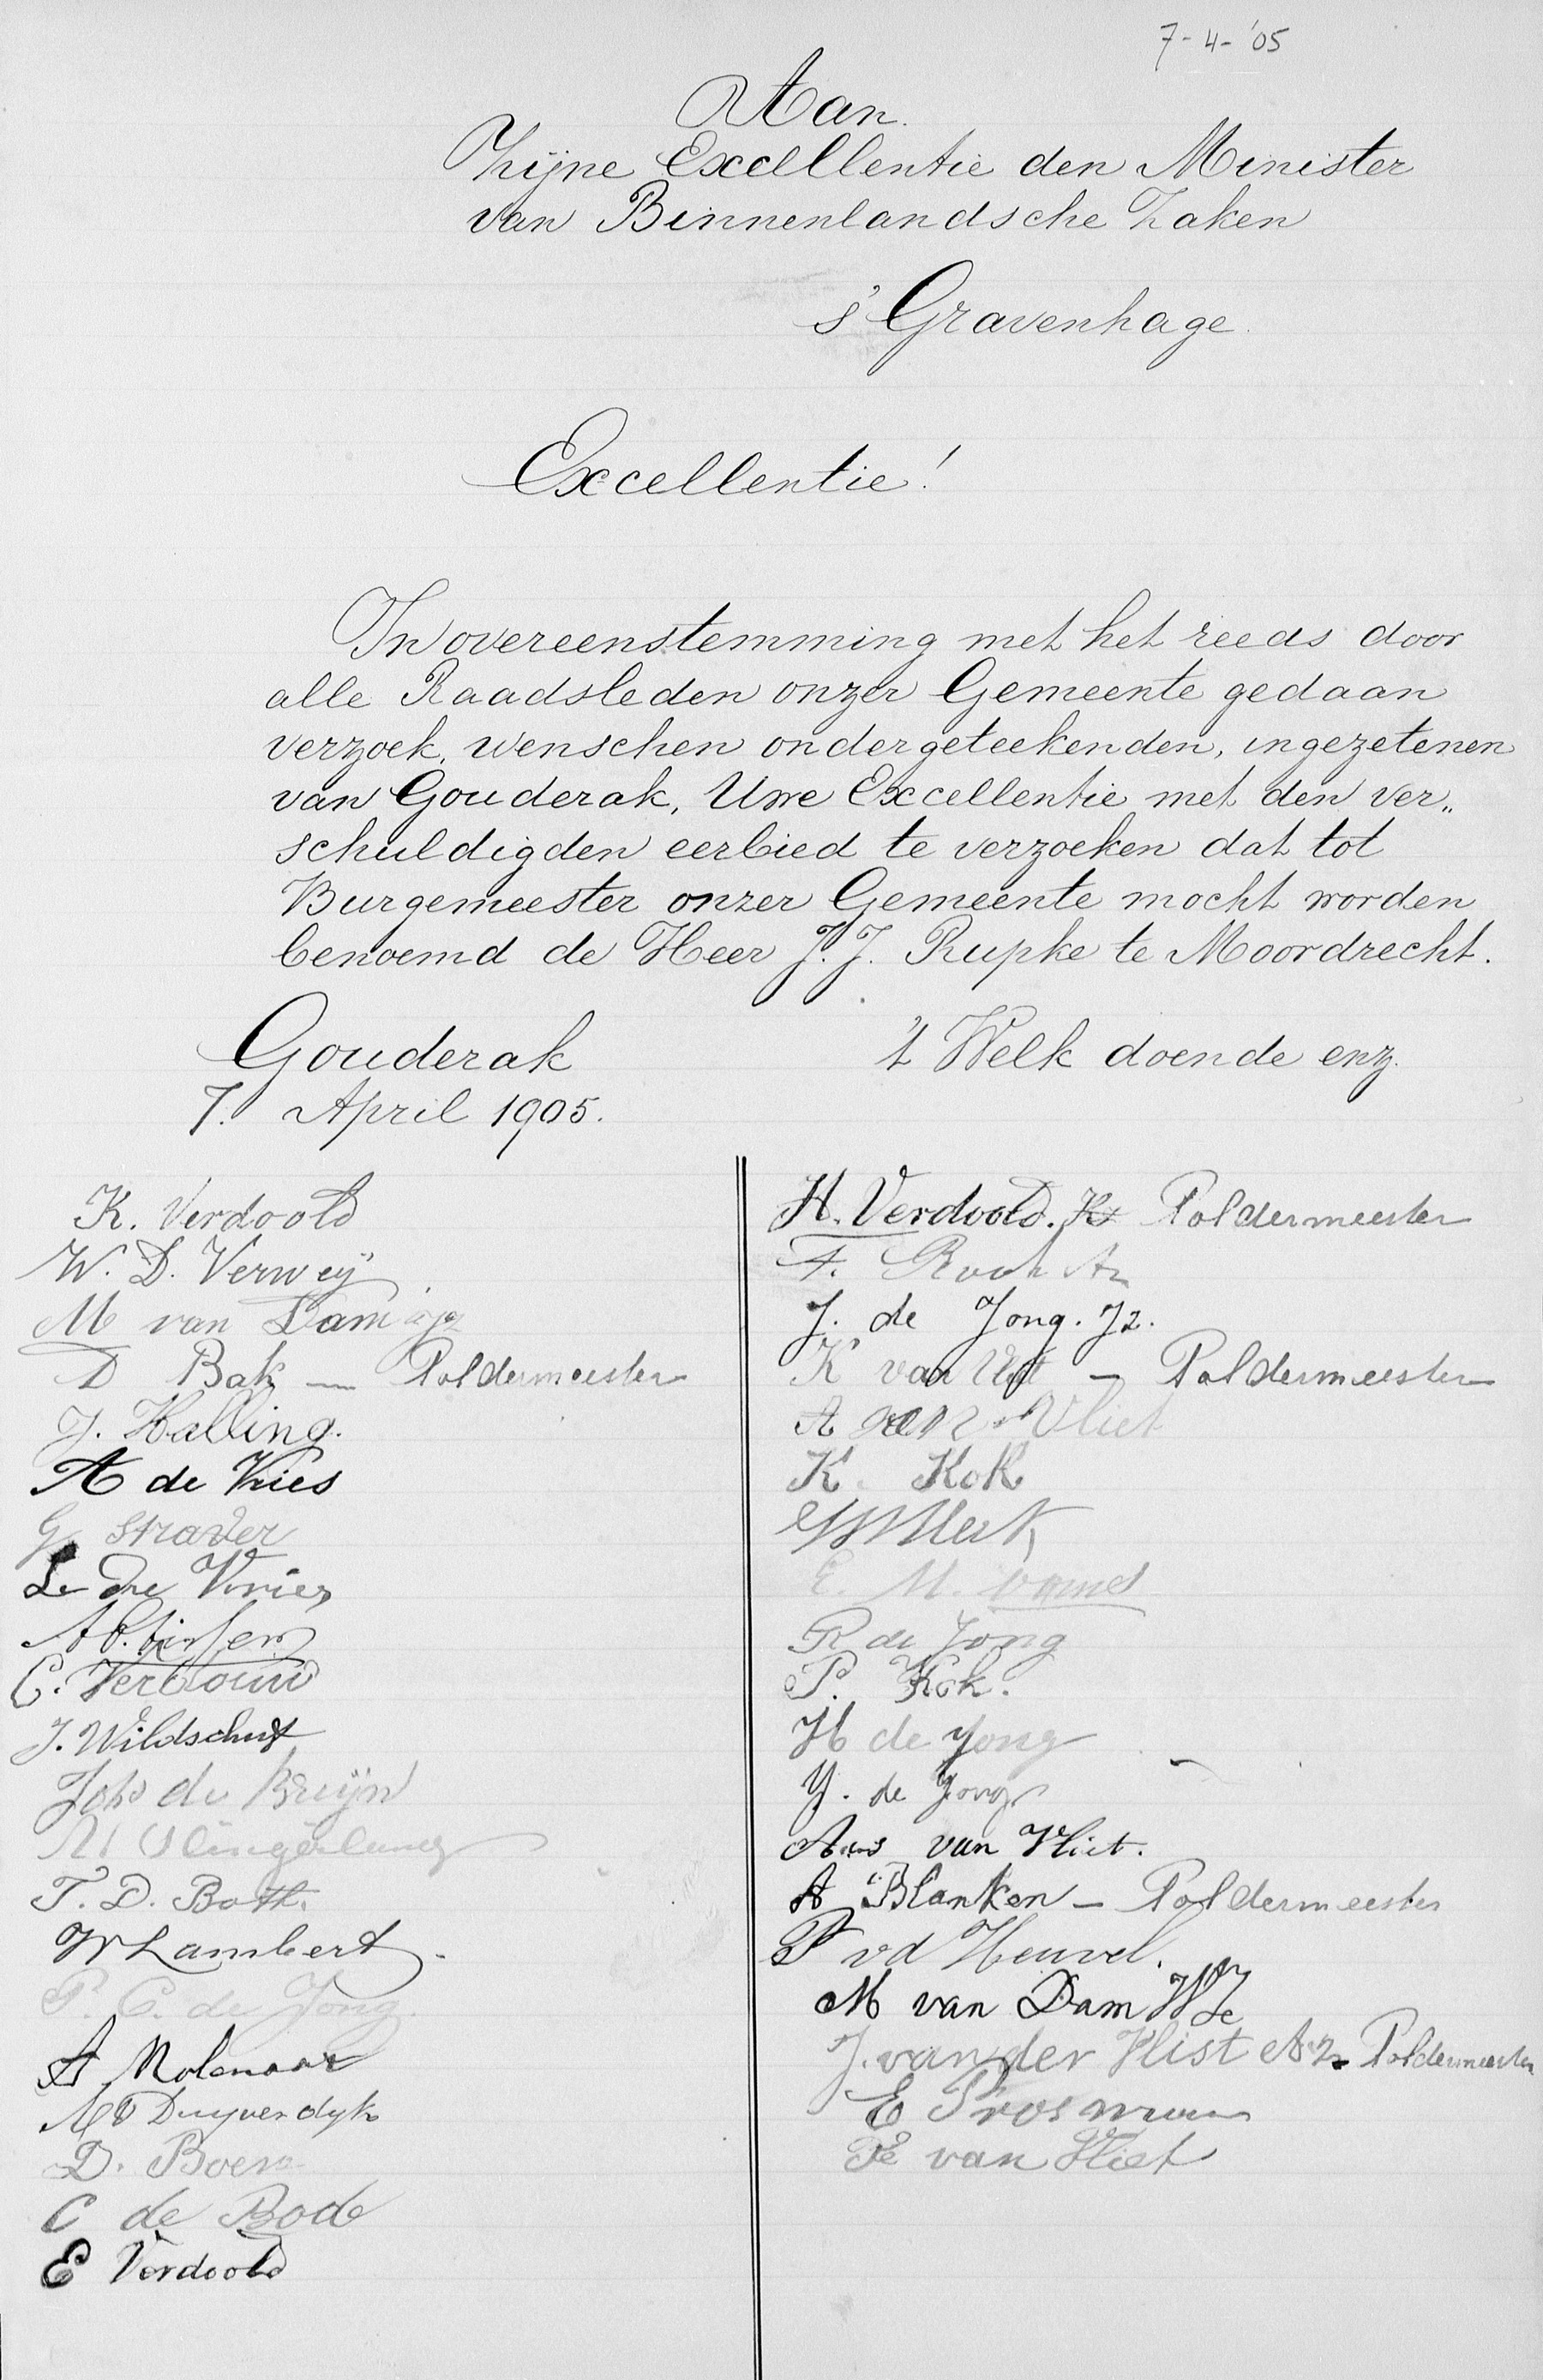 7-4-'05
Aan.
Zijne Excellentie den Minister
van Binnenlandsche Zaken
s' Gravenhage.
Excellentie!
In overeenstemming met het reeds door
alle Raadsleden onzer Gemeente gedaan
verzoek, wenschen ondergeteekenden, ingezetenen
van Gouderak, Uwe Excellentie met den ver„
schuldigden eerbied te verzoeken dat tot
Burgemeester onzer Gemeente mocht worden
benoemd de Heer J. J. Rupke te Moordrecht.
Gouderak
't Welk doende enz.
7. April 1905.
K. Verdoold
W. D. Verweij
M van Dam
D Bak — Poldermeester
J. Halling.
A de Vries
G Straver
L de Vries
C. Verbouw
J. Wildschut
Joh de Bruijn
Slingerland
T. D. Both.
W Lambert.
P. C. de Jong
A Molenaar
M Duyvendyk
D. Boere
C de Bode
E Verdoold
H. Verdoold. Kz Poldermeester
J. de Jong. Jz.
K van Vliet — Poldermeester
A van Vliet
K. Kok
E. M.
R de Jong
P. Kok.
H de Jong
J. de Jong
van Vliet.
A Blanken — Poldermeester
P vd Heuvel.
M van Dam WZ
J. van der Vlist Az. Poldermeester
E Prosman
van Vliet